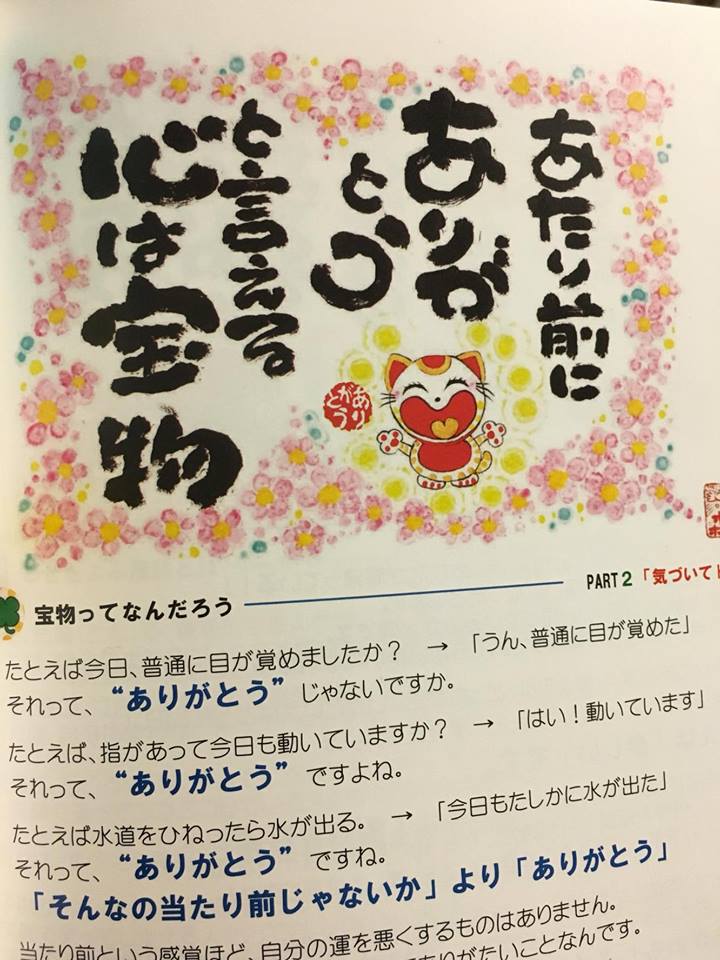 あたり前に
ありが
とう
と言える
心は宝物
ありがとう
PART2「気づいて
宝物ってなんだろう
たとえば今日、普通に目が覚めましたか？ → 「うん、普通に目が覚めた」
それって、“ありがとう” じゃないですか。
たとえば、指があって今日も動いていますか？ → 「はい！動いています」
それって、“ありがとう” ですよね。
たとえば水道をひねったら水が出る。 → 「今日もたしかに水が出た」
それって、“ありがとう” ですね。
「そんなの当たり前じゃないか」より「ありがとう」
当たり前という感覚ほど、自分の運を悪くするものはありません。
ありがたいことなんです。